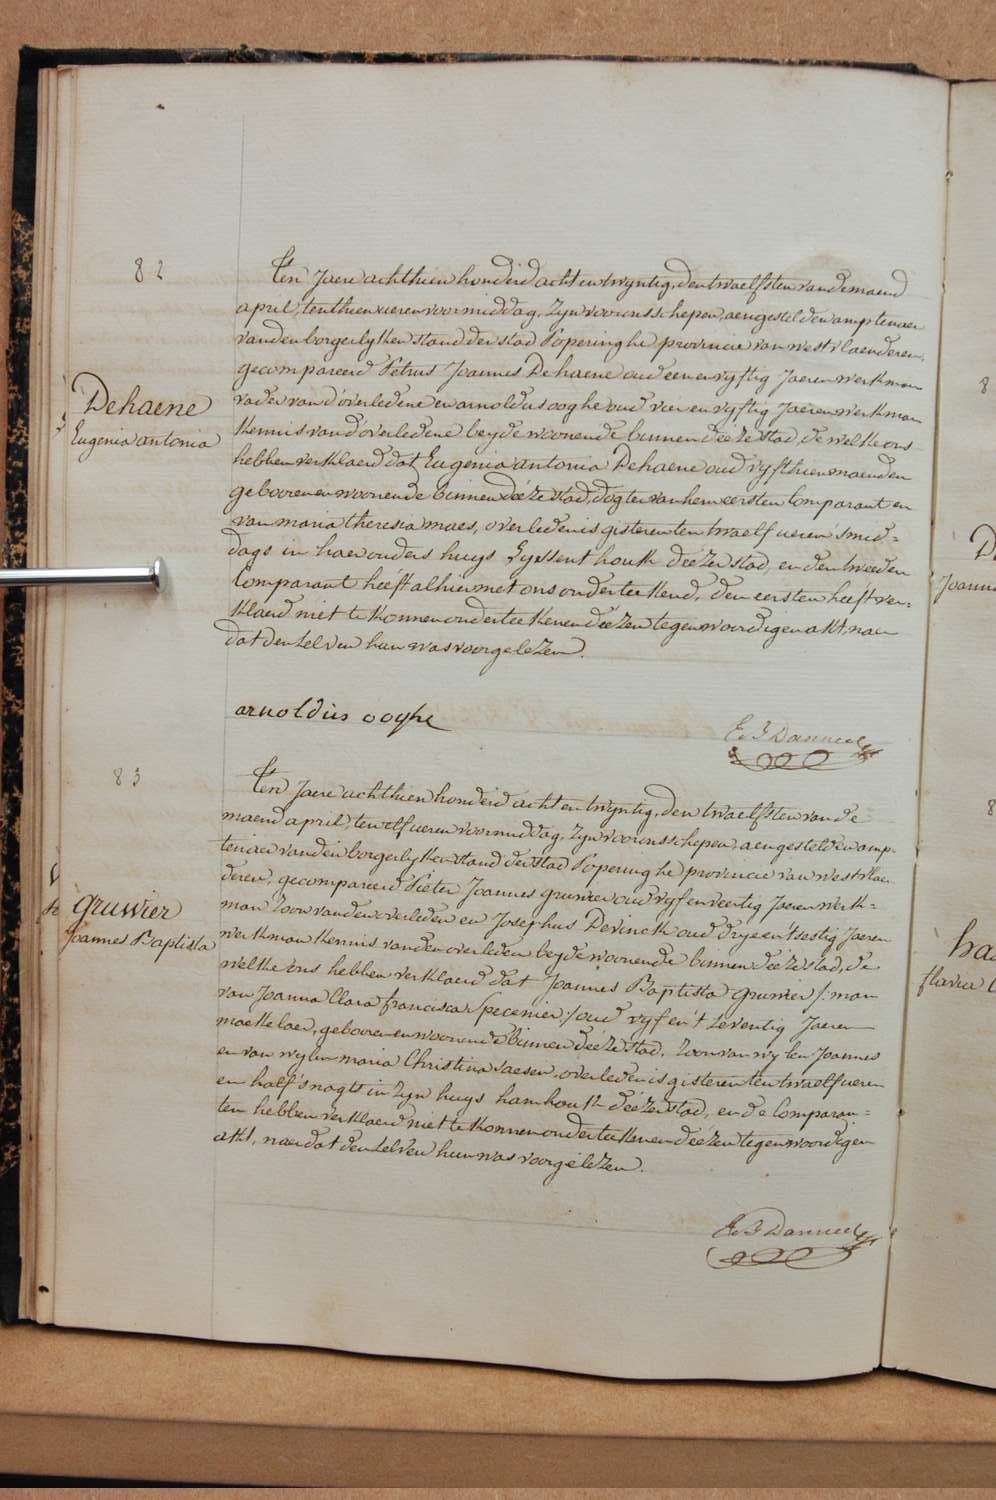 82
Dehaene
Eugenia antonia
Ten Jaere achthien honderd acht en twyntig, den twaelfsten van de maend
april, ten thien ueren voormiddag, zyn voor ons schepen, aengestelden amptenaer
van den borgerlyken stand der stad Poperinghe provincie van westvlaenderen,
gecompareerd Petrus Joannes Dehaene oud een en vyftig Jaeren werkman
vader van d'overledene en arnoldus ooghe oud vier en vyftig Jaeren werkman
kennis van d'overledene beyde woonende binnen déeze stad, de welke ons
hebben verklaerd dat Eugenia antonia Dehaene oud vyfthien maenden
gebooren en woonende binnen déeze stad, dogter van hem eersten Comparant en
van maria theresia maes, overleden is gisteren ten twaelf ueren 's mid=
dags in haer ouders huys Eyessent houck déézer stad, en den tweeden
Comparant heeft alhier met ons onderteekend, den eersten heeft ver=
klaerd niet te konnen onderteekenen déézen tegenwoordigen akt, naer
dat den zelven hun was voorgelezen.
arnoldus ooghe
E. J. Danneel
83
gruwier
Joannes Baptista
Ten Jaere achthien honderd acht en twyntig, den twaelfsten van de
maend april, ten elf ueren voormiddag, zyn voor ons schepen, aengestelden amp=
tenaer van den borgerlyken stand der stad Poperinghe provincie van westvlaen=
deren, gecompareerd Pieter Joannes gruwier oud vyf en veertig Jaeren werk=
man zoon van den overleden en Josephus Devinck oud drye en 't sestig Jaeren
werkman kennis van den overleden beyde woonende binnen déeze stad, de
welke ons hebben verklaerd dat Joannes Baptista gruwier /: man
van Joanna Clara francisca Specenier :/ oud vyf en 't seventig Jaeren
maekelaer, gebooren en woonende binnen déeze stad, zoon van wylen Joannes
en van wylen maria Christina vaesen, overleden is gisteren ten twaelf ueren
en half 's nagts in zyn huys hamhouck déézer stad, en de Comparan=
ten hebben verklaerd niet te konnen onderteekenen déézen tegenwoordigen
akt, naer dat den zelven hun was voorgelézen.
E. J. Danneel